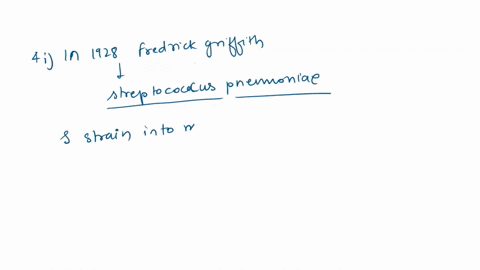 4 i) In 1928 fredrick griffith
↓
streptococcus pneumoniae
S strain into